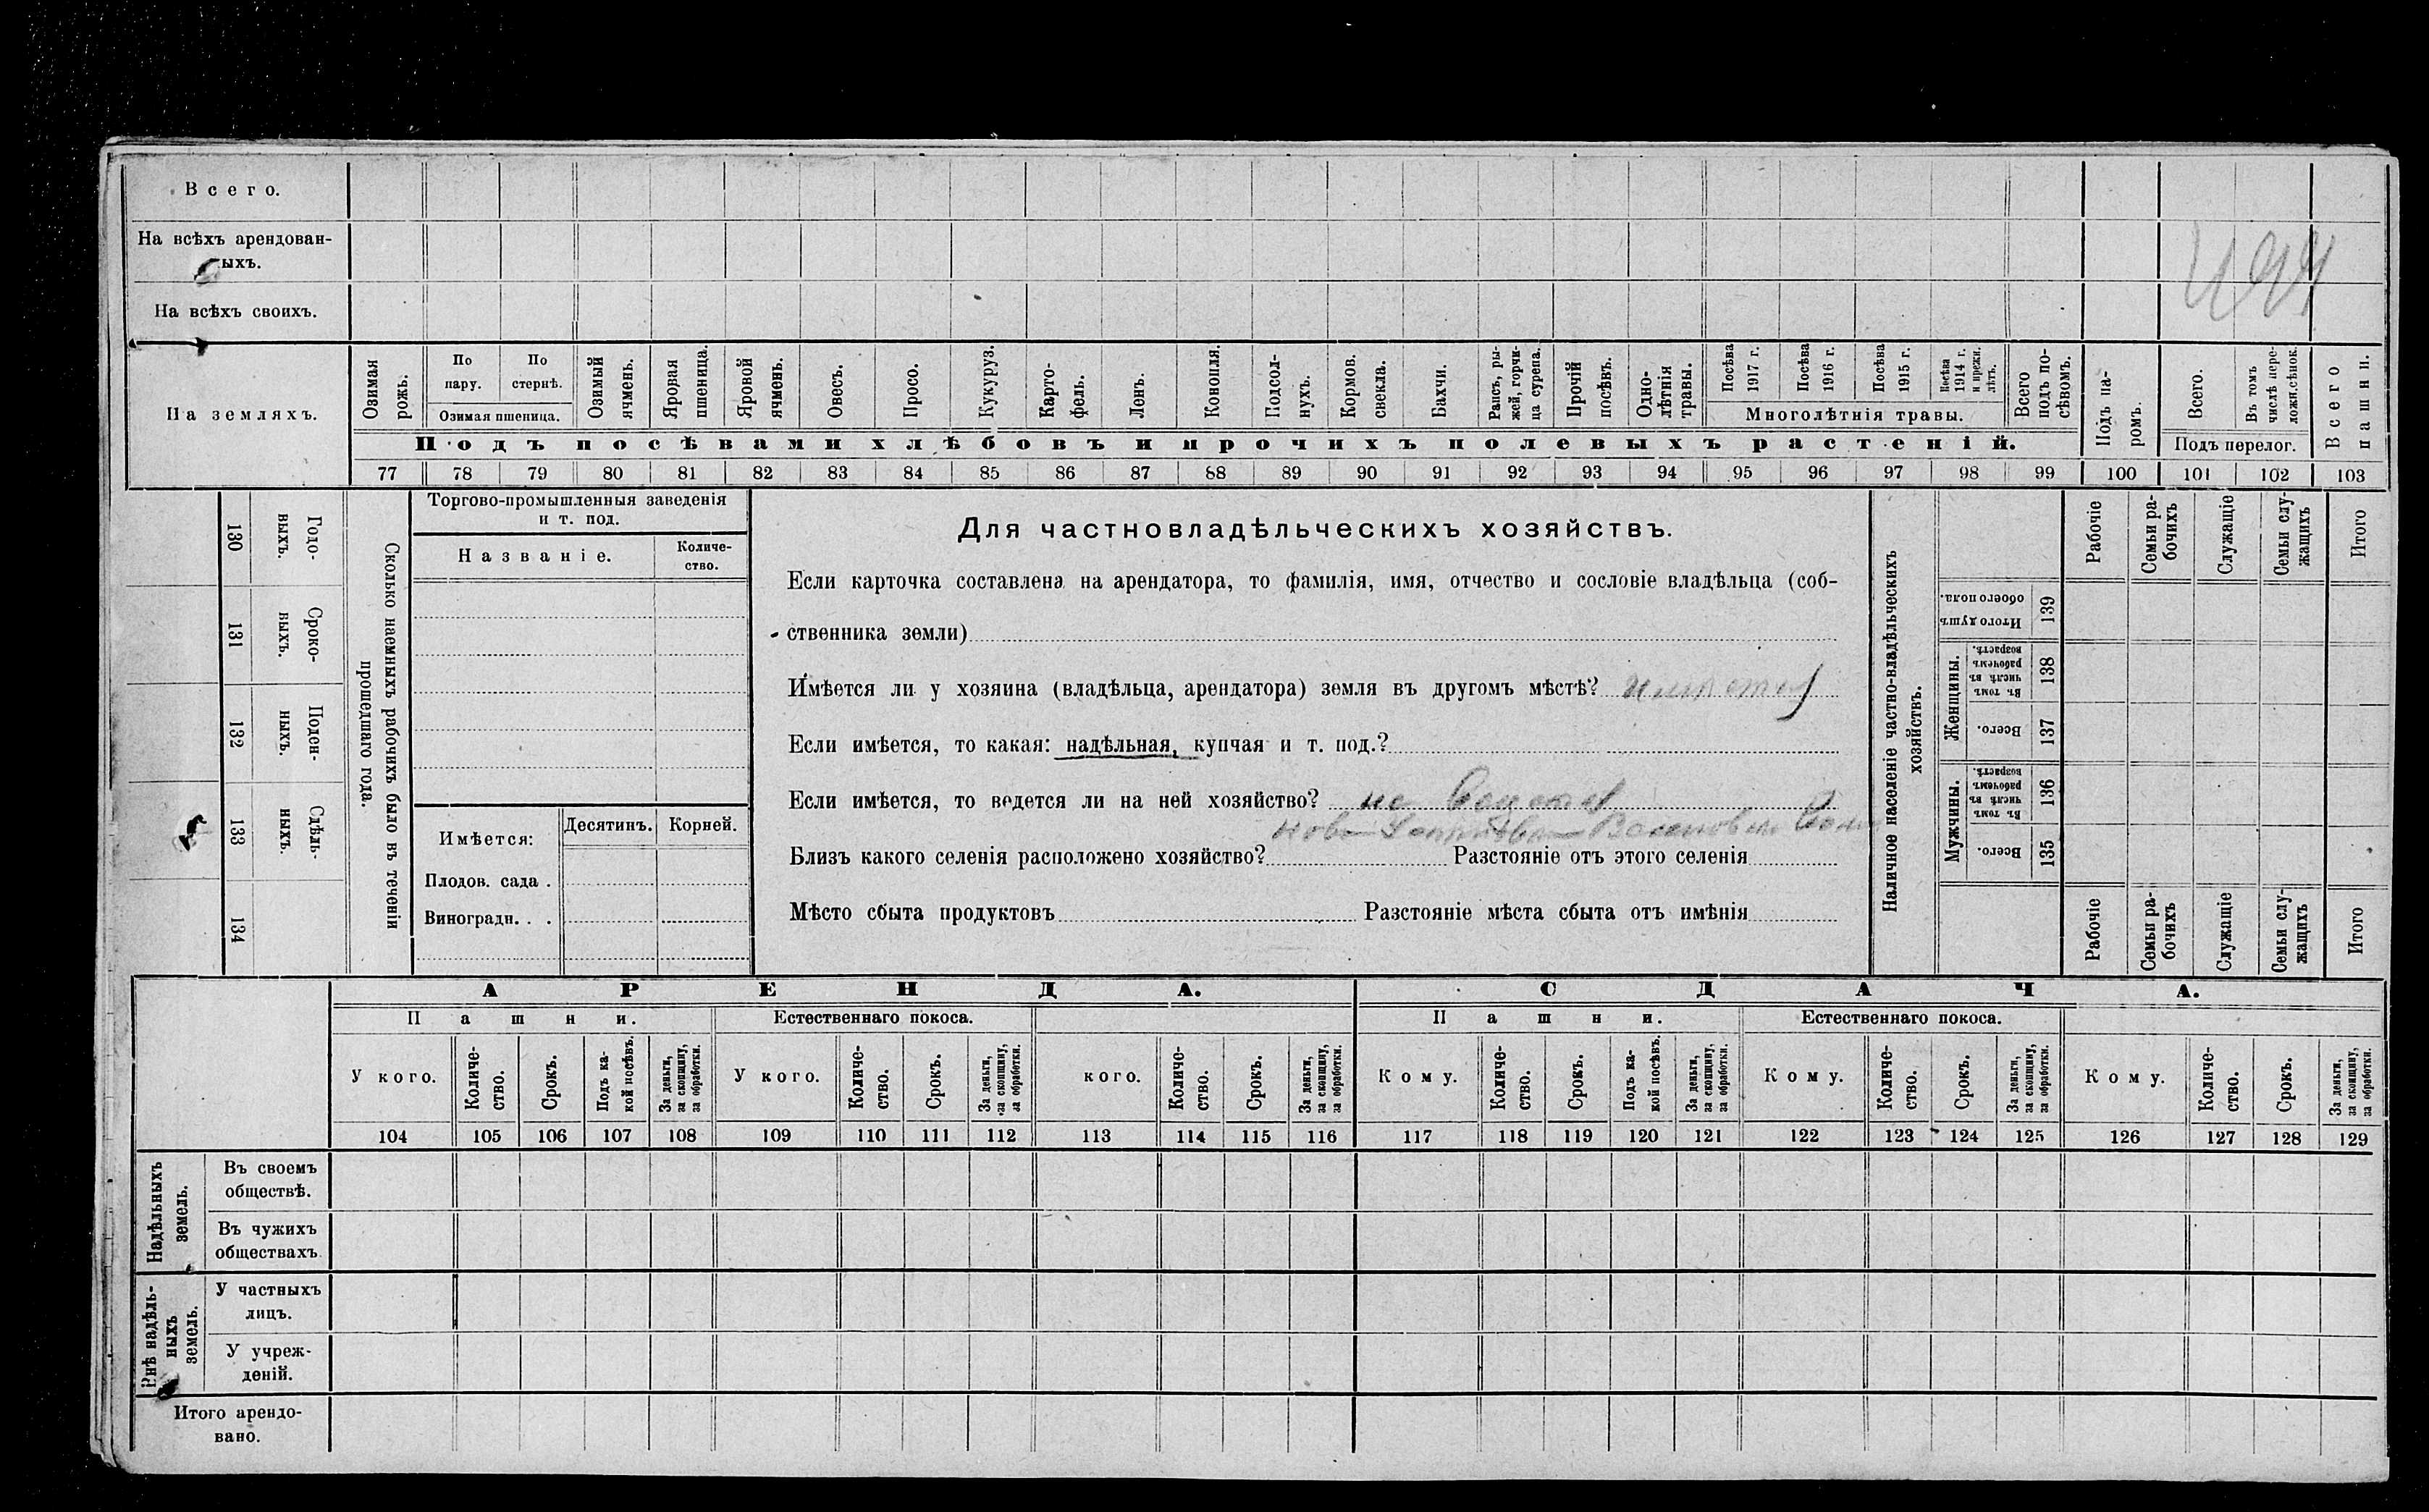 Всего.
На всѣхъ арендован-
ыхъ.
На всѣхъ своихъ.
На земляхъ.
Озимая рожь.
По пару.
По стернѣ.
Озимая пшеница.
Озимый ячмень.
Яровая пшеница.
Яровой ячмень.
Овесъ.
Просо.
Кукуруз.
Карто-
фель.
Ленъ.
Конопля.
Подсол-
нухъ.
Кормов. свекла.
Бахчи.
Рапсъ, ры-
жей, горчи-
ца сурепа.
Прочій посѣвъ.
Одно-
лѣтнія травы.
Посѣва 1917 г.
Посѣва 1916 г.
Посѣва 1915 г.
Посѣва 1914 г. и прежн. лѣтъ.
Многолѣтнія травы.
Всего подъ по-
сѣвомъ.
Подъ па-
ромъ.
Всего.
Въ томъ числѣ пере-
ложн.сѣнок.
Подъ перелог.
Всего пашни.
Подъ посѣвами хлѣбовъ и прочихъ полевыхъ растеній.
77 78 79 80 81 82 83 84 85 86 87 88 89 90 91 92 93 94 95 96 97 98 99 100 101 102 103
130 Годо-
выхъ.
131 Сроко-
выхъ.
132 Поден-
ныхъ.
133 Сдѣль-
ныхъ.
134
Сколько наемныхъ рабочихъ было въ теченіи
прошедшаго года.
Торгово-промышленныя заведенія
и т. под.
Названіе.
Количе-
ство.
Имѣется:
Десятинъ.
Корней.
Плодов. сада .
Виноградн. . .
Для частновладѣльческихъ хозяйствъ.
Если карточка составлена на арендатора, то фамилія, имя, отчество и сословіе владѣльца (соб-
ственника земли)
Имѣется ли у хозяина (владѣльца, арендатора) земля въ другомъ мѣстѣ? имѣется
Если имѣется, то какая: надѣльная, купчая и т. под.?
Если имѣется, то ведется ли на ней хозяйство? не ведется
Близъ какого селенія расположено хозяйство? Разстояніе отъ этого селенія
Мѣсто сбыта продуктовъ Разстояніе мѣста сбыта отъ имѣнія
Наличное населеніе частно-владѣльческихъ
хозяйствъ.
Итого душъ обоего пола. 139
Женщины.
Въ томъ числѣ въ рабочемъ возрастѣ. 138
Всего. 137
Мужчины.
Въ томъ числѣ въ рабочемъ возрастѣ. 136
Всего. 135
Рабочіе
Семьи ра-
бочихъ
Служащіе
Семьи слу-
жащихъ
Итого
Рабочіе
Семьи ра-
бочихъ
Служащіе
Семьи слу-
жащихъ
Итого
АРЕНДА. СДАЧА.
Пашни. Естественнаго покоса. Пашни. Естественнаго покоса.
У кого.
Количе-
ство.
Срокъ.
Подъ ка-
кой посѣвъ.
За деньги, за скопщину, за обработки.
У кого.
Количе-
ство.
Срокъ.
За деньги, за скопщину, за обработки.
кого.
Количе-
ство.
Срокъ.
За деньги, за скопщину, за обработки.
Кому.
Количе-
ство.
Срокъ.
Подъ ка-
кой посѣвъ.
За деньги, за скопщину, за обработки.
Кому.
Количе-
ство.
Срокъ.
За деньги, за скопщину, за обработки.
Кому.
Количе-
ство.
Срокъ.
За деньги, за скопщину, за обработки.
104 105 106 107 108 109 110 111 112 113 114 115 116 117 118 119 120 121 122 123 124 125 126 127 128 129
Надѣльныхъ земель.
Въ своемъ
обществѣ.
Въ чужихъ
обществахъ
Внѣ надѣль-
ныхъ земель.
У частныхъ
лицъ.
У учреж-
деній.
Итого арендо-
вано.